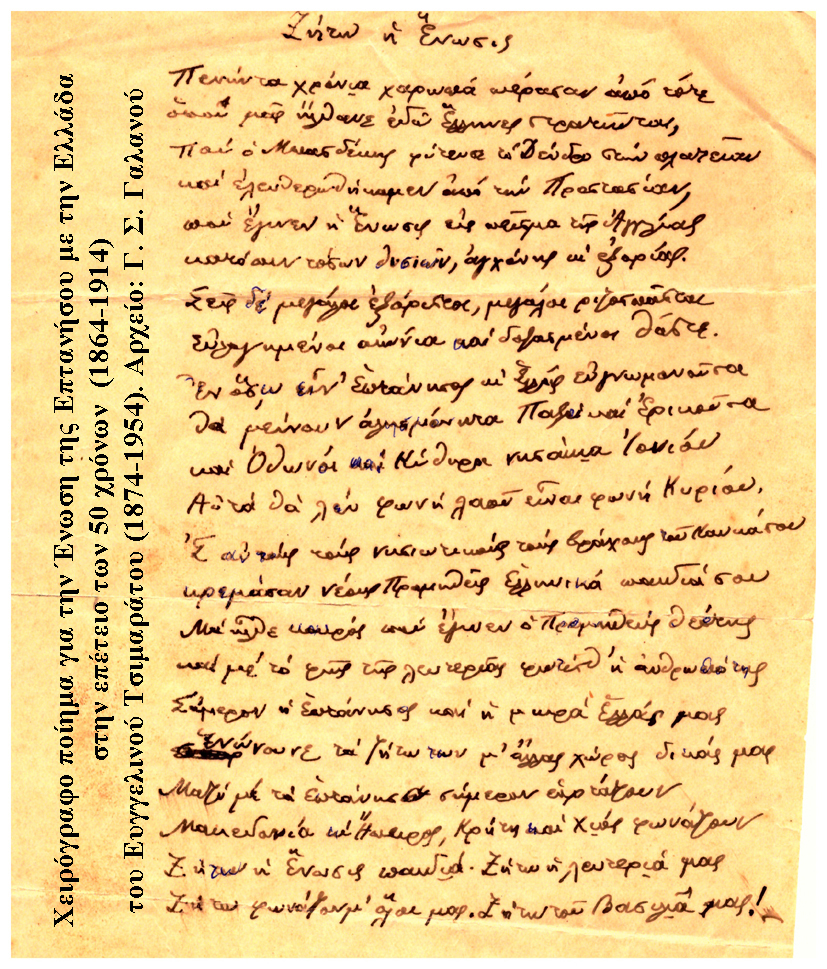 Χειρόγραφο ποίημα για την Ένωση της Επτανήσου με την Ελλάδα
στην επέτειο των 50 χρόνων (1864-1914)
του Ευγγελινού Τσιμαράτου (1874-1954). Αρχείο: Γ. Σ. Γαλανού
Ζήτω ἡ Ἕνωσις
Πενῆντα χρόνια χαρωπά πέρασαν ἀπό τότε
ὁποῦ μᾶς ἤλθανε ἐδῶ Ἕλληνες στρατιῶται,
Ποῦ ὁ φύτευσε τό Δένδρο στήν πλατεῖαν
καί ἐλευθερωθήκαμεν ἀπό τήν Προστασίαν,
ποῦ ἔγινεν ἡ Ἕνωσις εἰς πεῖσμα τῆς Ἀγγλίας
κατόπιν τόσων θυσιῶν, ἀγχόνης κι ἐξορίας.
Σεῖς δέ μεγάλοι ἐξόριστοι, μεγάλοι ριζοσπάσται
Εὐλογημένοι αἰώνια καί δοξασμένοι θἆστε.
Ἐν ὅσῳ εἶν' Ἑπτάνησος κι Ἑλλάς εὐγνωμονοῦσα
θά μείνουν ἀλησμόνητα Παξοί καί Ἐρικοῦσα
καί Ὀθωνοί καί Κύθηρα νησάκια Ἰονίου
Αὐτά θά λέν φωνή λαοῦ εἶναι φωνή Κυρίου.
Σ' αὐτούς τούς νησιωτικούς τούς βράχους τοῦ Καυκάσου
κρεμάσαν νέους Προμηθεῖς Ἑλληνικά παιδιά σου
Μά ἦλθε καιρός ποῦ ἔγινεν ὁ Προμηθεύς θεότης
καί μέ τό φῶς τῆς λευτεριᾶς φωτίσθ' ἡ ἀνθρωπότης
Σήμερον ἡ Ἑπτάνησος καί ἡ μικρά Ἑλλάς μας
Ἑνώνουνε τά ζήτω των μ' ἄλλας χώρας δικάς μας
Μαζύ μέ τά ἑπτάνησα σήμερον ἑορτάζουν
Μακεδονία κι Ἤπειρος, Κρήτη καί Χιός φωνάζουν
Ζήτω ἡ Ἕνωσις παιδιά. Ζήτω ἡ λευτεριά μας
Ζήτω φωνάζουμ' ὅλοι μας. Ζήτω τοῦ Βασιλιᾶ μας!